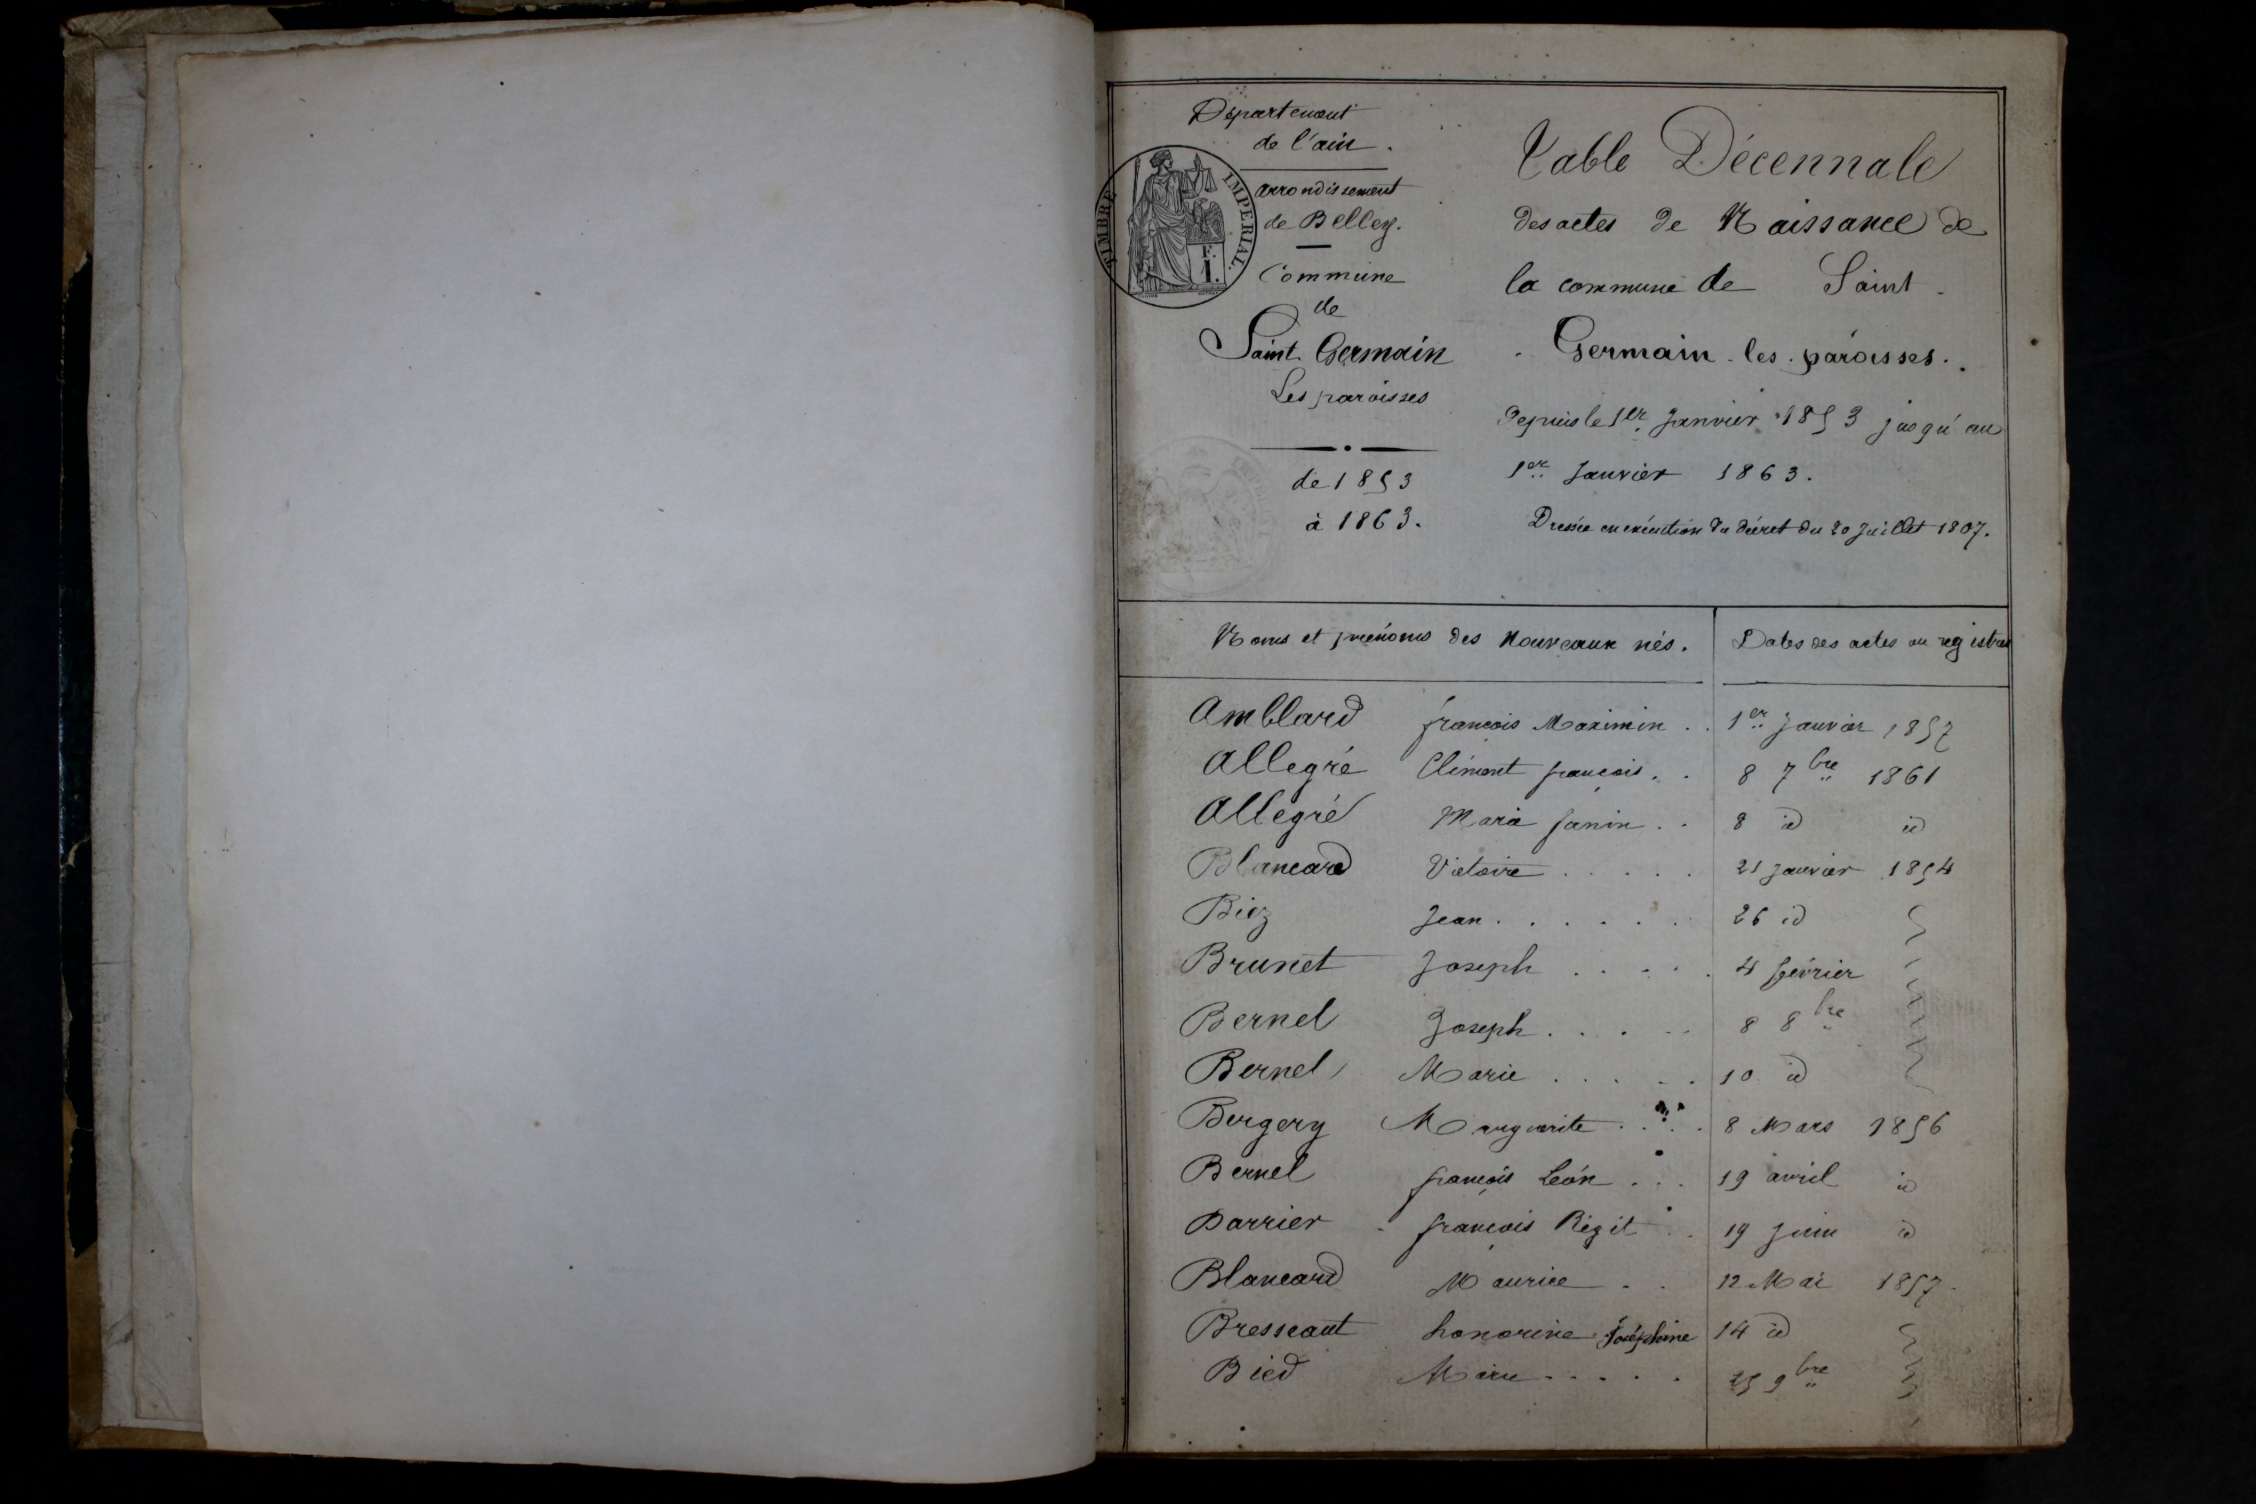 Département
de l'ain.
arrondissement
de Belley.
Commune
de
Saint Germain
Les paroisses
de 1853
à 1863.
TIMBRE IMPERIAL.
F.
1.
Table Décennale
des actes de Naissance de
la commune de Saint
Germain-les-paroisses.
Depuis le 1er Janvier 1853 jusqu'au
1er Janvier 1863.
Dressée en exécution du décret du 20 Juillet 1807.
Noms et prénoms des Nouveaux nés. Dates des actes au registre
Amblard françois Maximin . . 1er Janvier 1857
Allegré Clément françois. . 8 7bre 1861
Allegré Marie Janin . . 8 id id
Blancard Victoire . . . . . 21 Janvier 1854
Biez Jean . . . . . . 26 id
Brunet Joseph . . . . . 4 février
Bernel Joseph . . . . . 8 8bre
Bernel Marie . . . . . 10 id
Bergery Marguerite . . . . 8 Mars 1856
Bernel françois Léon . . . 19 avril id
Barrier françois Régit . . 19 Juin id
Blancard Maurice . . 12 Mai 1857.
Bresseaut honorine Joséphine 14 id
Bied Marie . . . . . 25 9bre